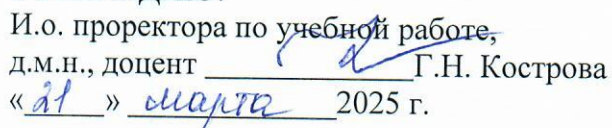 И.о. проректора по учебной работе,
д.м.н., доцент ______________Г.Н. Кострова
«21» марта 2025 г.